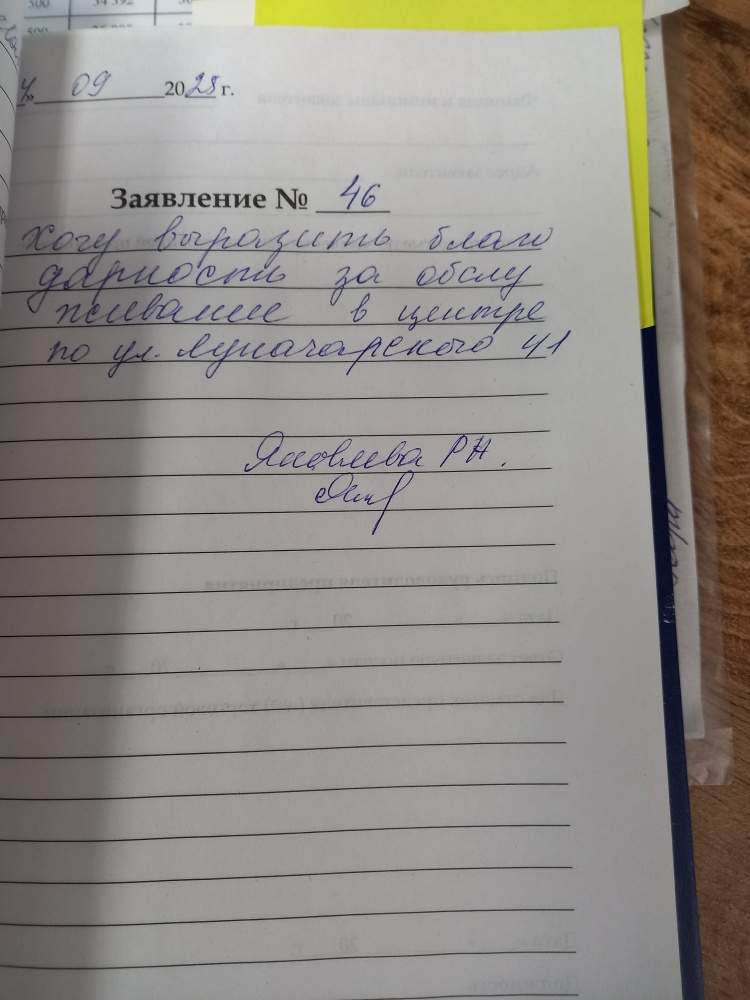 09 2025 г.
Заявление № 46
Хочу выразить благо
дарность за обслу
живание в центре
по ул. Луначарского 41
Яковлева РН.